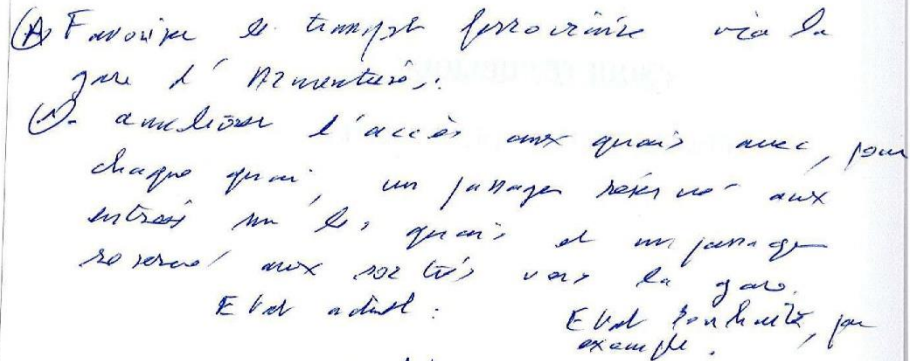 (A) Favoriser le transport ferroviaire via la
gare d'Armentières.
(1) - améliorer l'accès aux quais avec, pour
chaque quai, un passage réservé aux
entrées sur les quais et un passage
réservé aux sorties vers la gare.
Etat actuel : Etat souhaité, par
exemple.